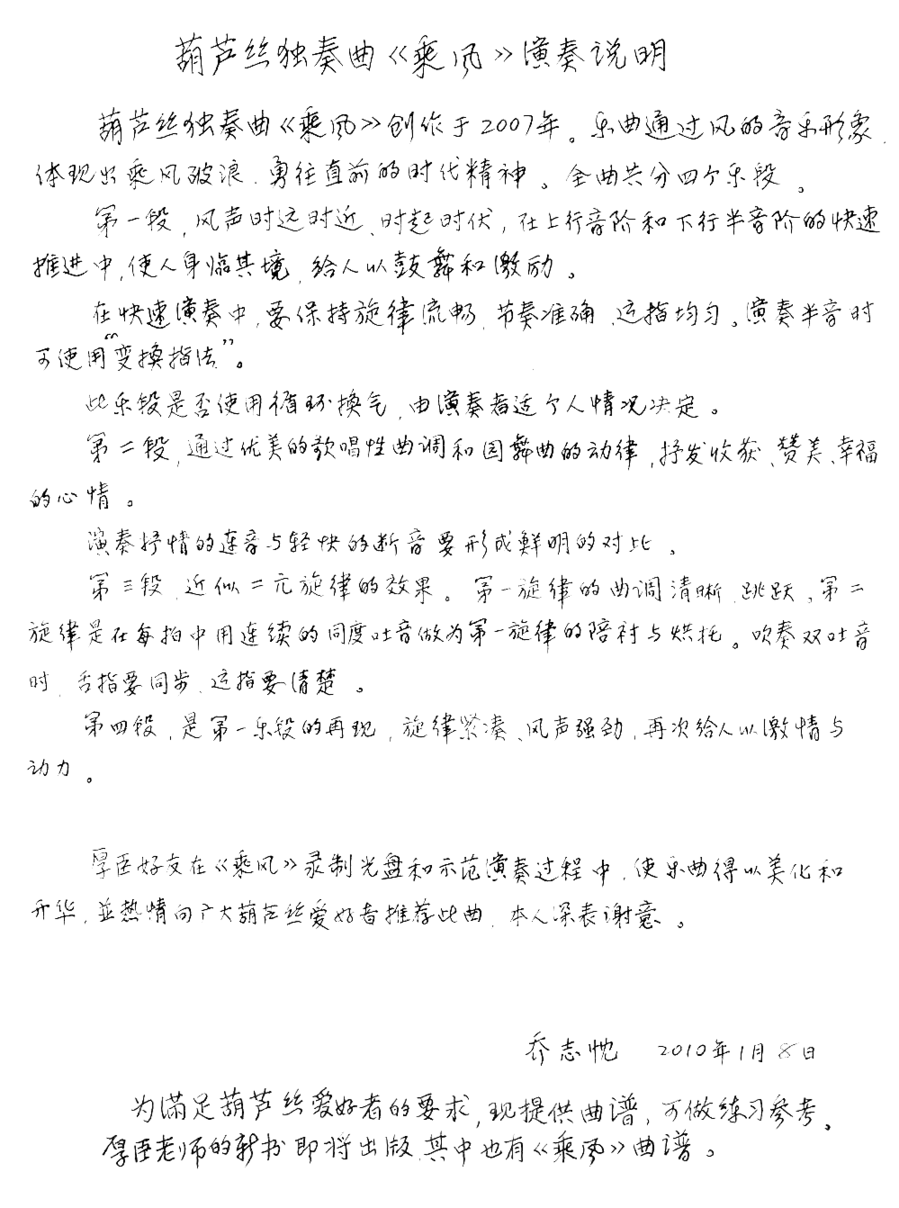 葫芦丝独奏曲《乘风》演奏说明
葫芦丝独奏曲《乘风》创作于2007年。乐曲通过风的音乐形象,
体现出乘风破浪、勇往直前的时代精神。全曲共分四个乐段。
第一段,风声时远时近、时起时伏,在上行音阶和下行半音阶的快速
推进中,使人身临其境,给人以鼓舞和激励。
在快速演奏中,要保持旋律流畅、节奏准确、运指均匀。演奏半音时
可使用“变换指法”。
此乐段是否使用循环换气,由演奏者适个人情况决定。
第二段,通过优美的歌唱性曲调和园舞曲的动律,抒发收获、赞美、幸福
的心情。
演奏抒情的连音与轻快的断音要形成鲜明的对比。
第三段,近似二元旋律的效果。第一旋律的曲调清晰、跳跃,第二
旋律是在每拍中用连续的同度吐音做为第一旋律的陪衬与烘托。吹奏双吐音
时,舌指要同步,运指要清楚。
第四段,是第一乐段的再现,旋律紧凑、风声强劲,再次给人以激情与
动力。
厚臣好友在《乘风》录制光盘和示范演奏过程中,使乐曲得以美化和
升华,並热情向广大葫芦丝爱好者推荐此曲,本人深表谢意。
乔志忱 2010年1月8日
为满足葫芦丝爱好者的要求,现提供曲谱,可做练习参考。
厚臣老师的新书即将出版,其中也有《乘风》曲谱。